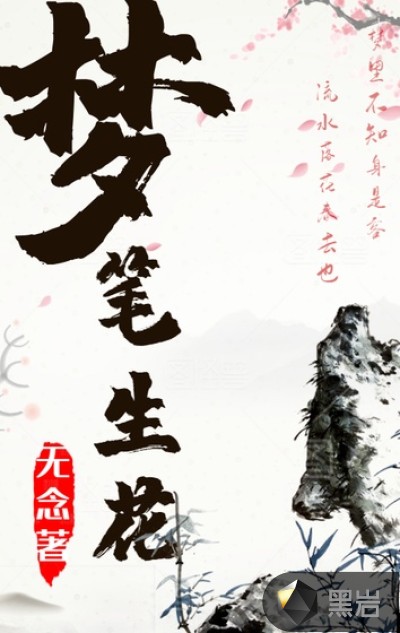 梦笔生花
梦里不知身是客
流水落花春去也
无念著
黑岩